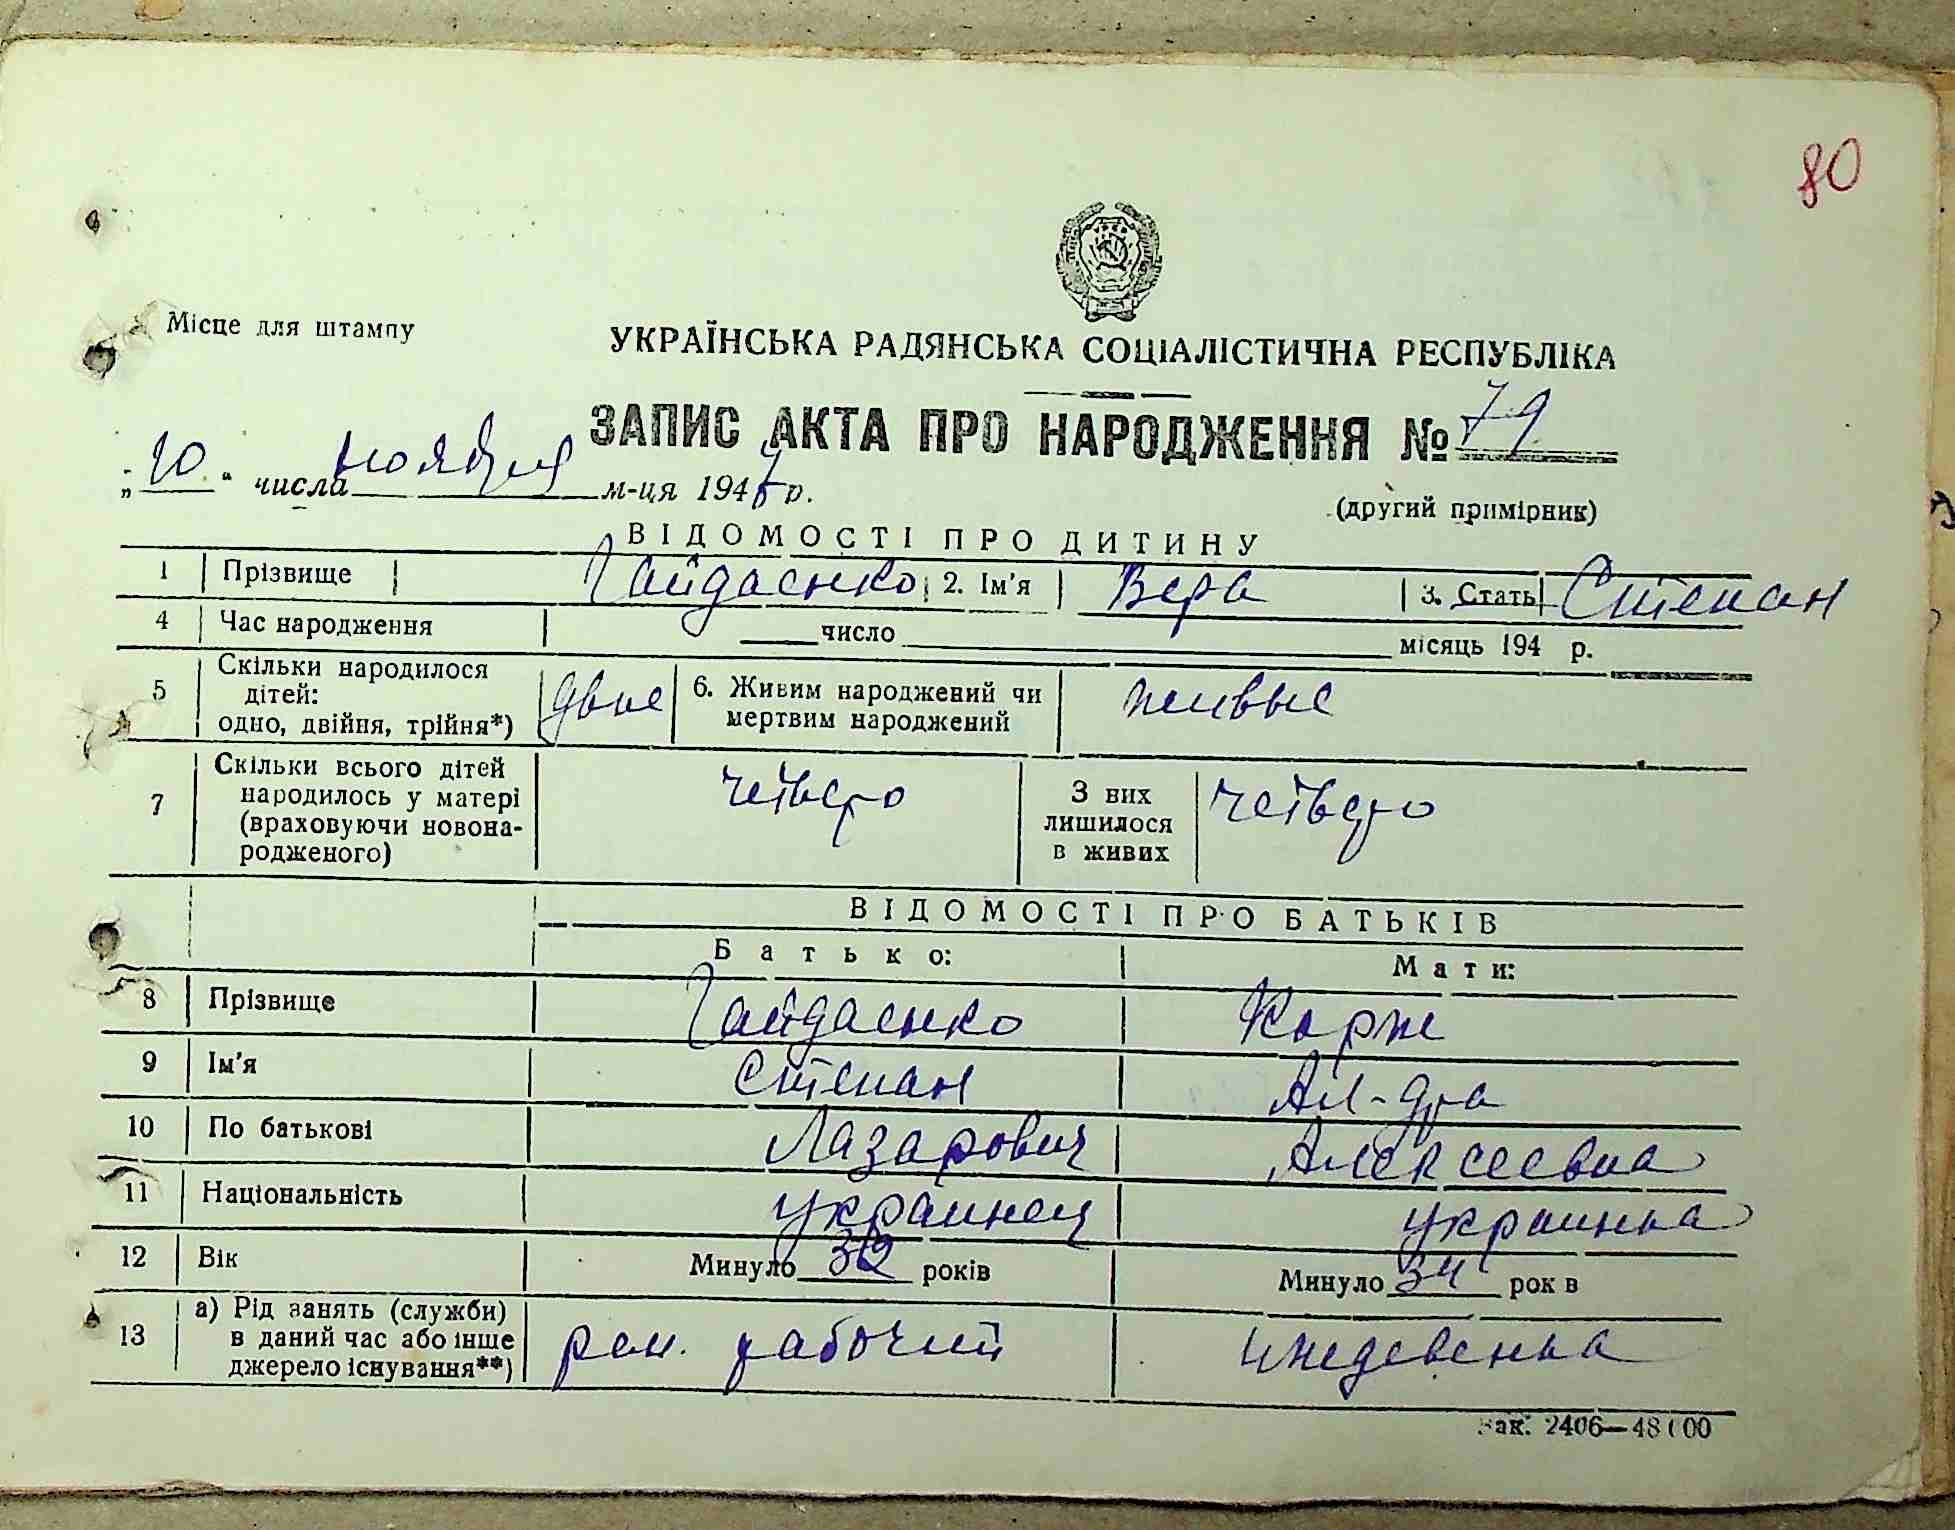 80
Місце для штампу
УКРАЇНСЬКА РАДЯНСЬКА СОЦІАЛІСТИЧНА РЕСПУБЛІКА
ЗАПИС АКТА ПРО НАРОДЖЕННЯ № 79
„10“ числа ноября м-ця 1947 р.
(другий примірник)
ВІДОМОСТІ ПРО ДИТИНУ
1 Прізвище Гайдаенко 2. Ім'я Вера 3. Стать Степан
4 Час народження число місяць 194 р.
5 Скільки народилося дітей: одно, двійня, трійня*) двое 6. Живим народжений чи мертвим народжений живые
7 Скільки всього дітей народилось у матері (враховуючи новона-родженого) четверо З них лишилося в живих четверо
ВІДОМОСТІ ПРО БАТЬКІВ
Батько: Мати:
8 Прізвище Гайдаенко Корж
9 Ім'я Степан Ал-дра
10 По батькові Лазарович Алексеевна
11 Національність украинец украинка
12 Вік Минуло років Минуло 34 рок в
13 а) Рід занять (служби) в даний час або інше джерело існування**) рабочий иждевенка
Зак. 2406—48000